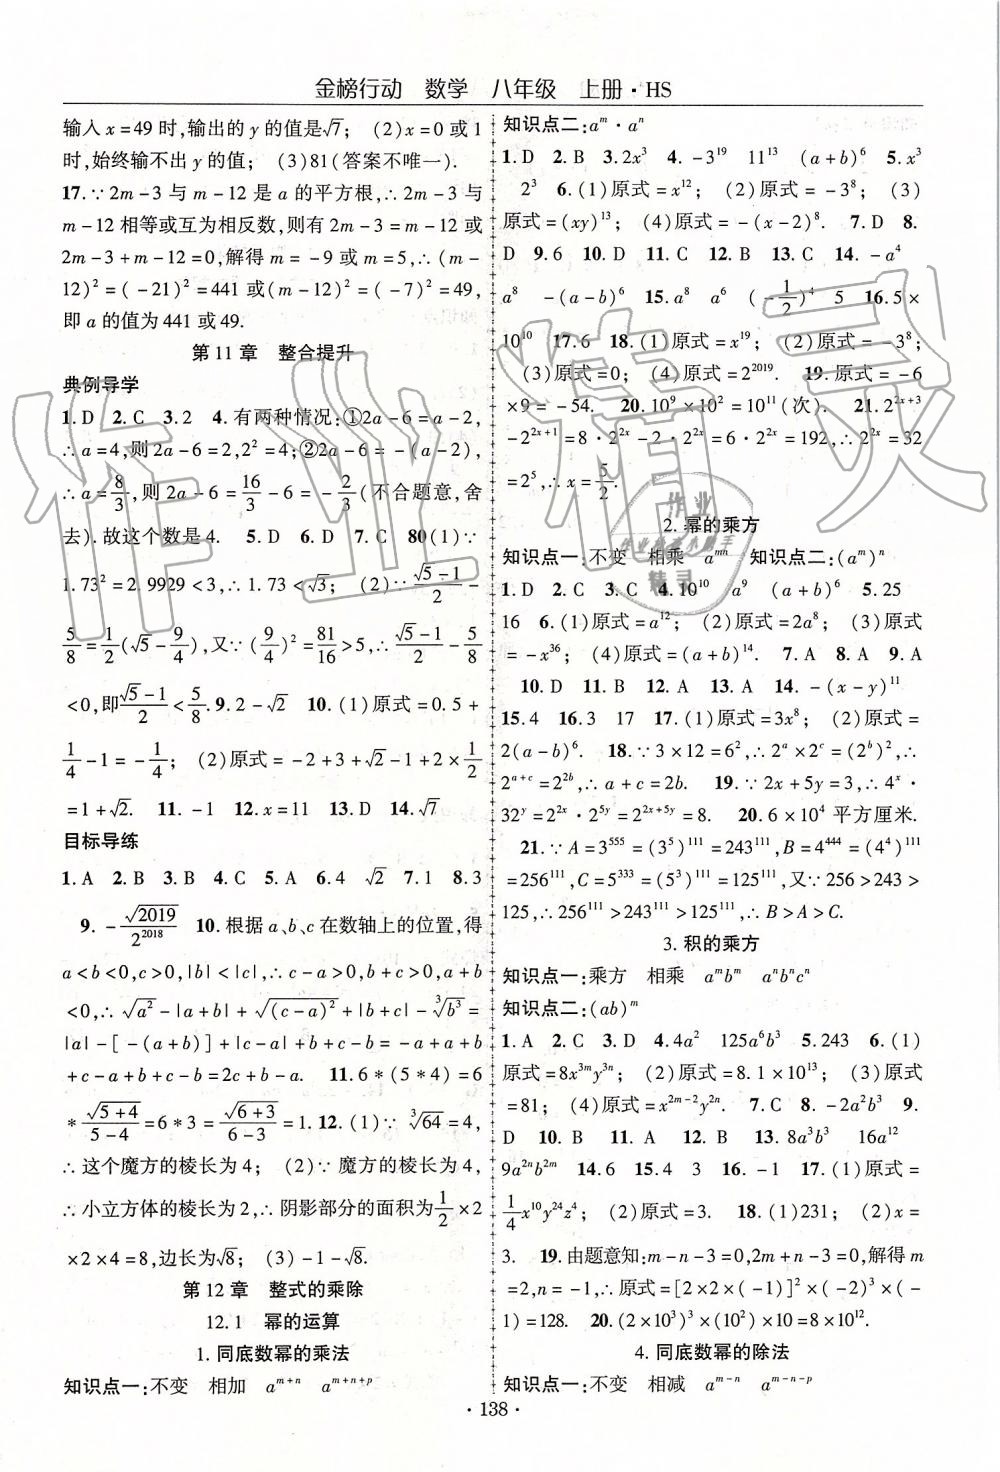 金榜行动　数学　八年级　上册·HS
输入 x=49 时,输出的 y 的值是√7；(2)x=0 或 1
时,始终输不出 y 的值；(3)81(答案不唯一).
17.∵2m-3 与 m-12 是 a 的平方根,∴2m-3 与
m-12 相等或互为相反数,则有 2m-3=m-12 或
2m-3+m-12=0,解得 m=-9 或 m=5,∴(m-
12)²=(-21)²=441 或(m-12)²=(-7)²=49,
即 a 的值为 441 或 49.
第 11 章　整合提升
典例导学
1.D 2.C 3.2 4.有两种情况:①2a-6=a-2,
∴a=4,则 2a-6=2,2²=4;②2a-6=-(a-2),
∴a=8/3,则 2a-6=16/3-6=-2/3(不合题意,舍
去).故这个数是 4. 5.D 6.D 7.C 80(1)∵
1.73²=2.9929<3,∴1.73<√3；(2)∵(√5-1)/2-
5/8=1/2(√5-9/4),又∵(9/4)²=81/16>5,∴(√5-1)/2-5/8
<0,即(√5-1)/2<5/8.9.2-√2 10.(1)原式=0.5+
1/4-1=-1/4；(2)原式=-2+3+√2-1+2×1/2
=1+√2. 11.-1 12.x=11 13.D 14.√7
目标导练
1.A 2.B 3.B 4.C 5.A 6.4 √2 7.1 8.3
9.-√2019/2²⁰¹⁸ 10.根据 a、b、c 在数轴上的位置,得
a<b<0,c>0,|b|<|c|,∴c-a>0,b+c>0,a+b
<0,∴√a²-|a+b|+√(c-a)²+|b+c|-³√b³=
|a|-[-(a+b)]+|c-a|+b+c-b=-a+a+b
+c-a+b+c-b=2c+b-a. 11.6*(5*4)=6
*√(5+4)/(5-4)=6*3=√(6+3)/(6-3)=1.12.(1)∵³√64=4,
∴这个魔方的棱长为 4；(2)∵魔方的棱长为 4,
∴小立方体的棱长为 2,∴阴影部分的面积为1/2×2
×2×4=8,边长为√8；(3)-1-√8.
第 12 章　整式的乘除
12.1　幂的运算
1.同底数幂的乘法
知识点一:不变　相加　aᵐ⁺ⁿ　aᵐ⁺ⁿ⁺ᵖ
知识点二:aᵐ·aⁿ
1.D 2.B 3.2x³ 4.-3¹⁹ 11¹³ (a+b)⁶ 5.x³
2³ 6.(1)原式=x¹²；(2)原式=-3⁸；(3)
原式=(xy)¹³；(4)原式=-(x-2)⁸. 7.D 8.
D 9.6 10.D 11.C 12.B 13.C 14.-a⁴
a⁸ -(a-b)⁶ 15.a⁸ a⁶ (-1/2)⁴ 5 16.5×
10¹⁰ 17.6 18.(1)原式=x¹⁹；(2)原式=-3⁸；
(3)原式=0；(4)原式=2²⁰¹⁹. 19.原式=-6
×9=-54. 20.10⁹×10²=10¹¹(次). 21.2²ˣ⁺³
-2²ˣ⁺¹=8·2²ˣ-2·2²ˣ=6·2²ˣ=192,∴2²ˣ=32
=2⁵,∴x=5/2.
2.幂的乘方
知识点一:不变　相乘　aᵐⁿ　知识点二:(aᵐ)ⁿ
1.D 2.C 3.C 4.10¹⁰ a⁹ (a+b)⁶ 5.25
16 6.(1)原式=a¹²；(2)原式=2a⁸；(3)原式
=-x³⁶；(4)原式=(a+b)¹⁴. 7.A 8.A 9.A
10.D 11.B 12.A 13.A 14.-(x-y)¹¹
15.4 16.3 17 17.(1)原式=3x⁸；(2)原式=
2(a-b)⁶. 18.∵3×12=6²,∴2ᵃ×2ᶜ=(2ᵇ)²,∴
2ᵃ⁺ᶜ=2²ᵇ,∴a+c=2b. 19.∵2x+5y=3,∴4ˣ·
32ʸ=2²ˣ·2⁵ʸ=2²ˣ⁺⁵ʸ=8. 20.6×10⁴ 平方厘米.
21.∵A=3⁵⁵⁵=(3⁵)¹¹¹=243¹¹¹,B=4⁴⁴⁴=(4⁴)¹¹¹
=256¹¹¹,C=5³³³=(5³)¹¹¹=125¹¹¹,又∵256>243>
125,∴256¹¹¹>243¹¹¹>125¹¹¹,∴B>A>C.
3.积的乘方
知识点一:乘方　相乘　aᵐbᵐ　aⁿbⁿcⁿ
知识点二:(ab)ᵐ
1.A 2.C 3.D 4.4a² 125a⁶b³ 5.243 6.(1)
原式=8x³ᵐy³ⁿ；(2)原式=8.1×10¹³；(3)原式
=81；(4)原式=x²ᵐ⁻²y²ⁿ. 7.C 8.-2a²b³ 9.
D 10.B 11.A 12.B 13.8a³b³ 16a¹²
9a²ⁿb²ᵐ 14.6 15.4 16.-1 17.(1)原式=
1/4x¹⁰y²⁴z⁴；(2)原式=3. 18.(1)231；(2)x=
3. 19.由题意知:m-n-3=0,2m+n-3=0,解得 m
=2,n=-1,∴原式=[2×2×(-1)]²×(-2)³×(-
1)=128. 20.(2×10³)³×(10²)×10=8×10¹².
4.同底数幂的除法
知识点一:不变　相减　aᵐ⁻ⁿ　aᵐ⁻ⁿ⁻ᵖ
·138·
作业精灵
作业
精灵